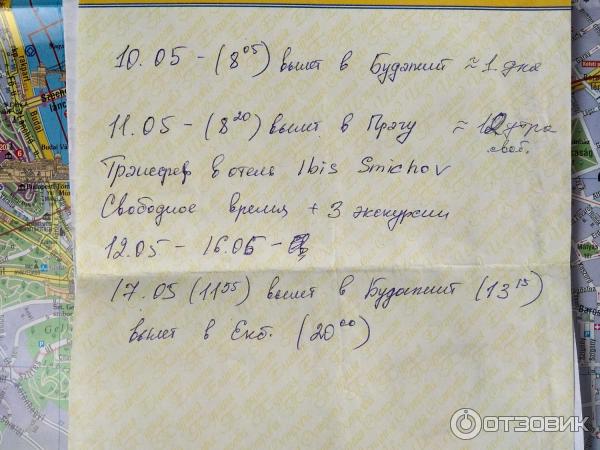 10.05 - (8⁰⁵) вылет в Будапешт ≈ 1. дня
11.05 - (8²⁰) вылет в Прагу ≈ 12 утра
своб.
Трансфер в отель Ibis Smichov
Свободное время + 3 экскурсии
12.05 - 16.05 -
17.05 (11⁵⁵) вылет в Будапешт (13¹⁵)
вылет в Екб. (20⁰⁰)
ОТЗОВИК